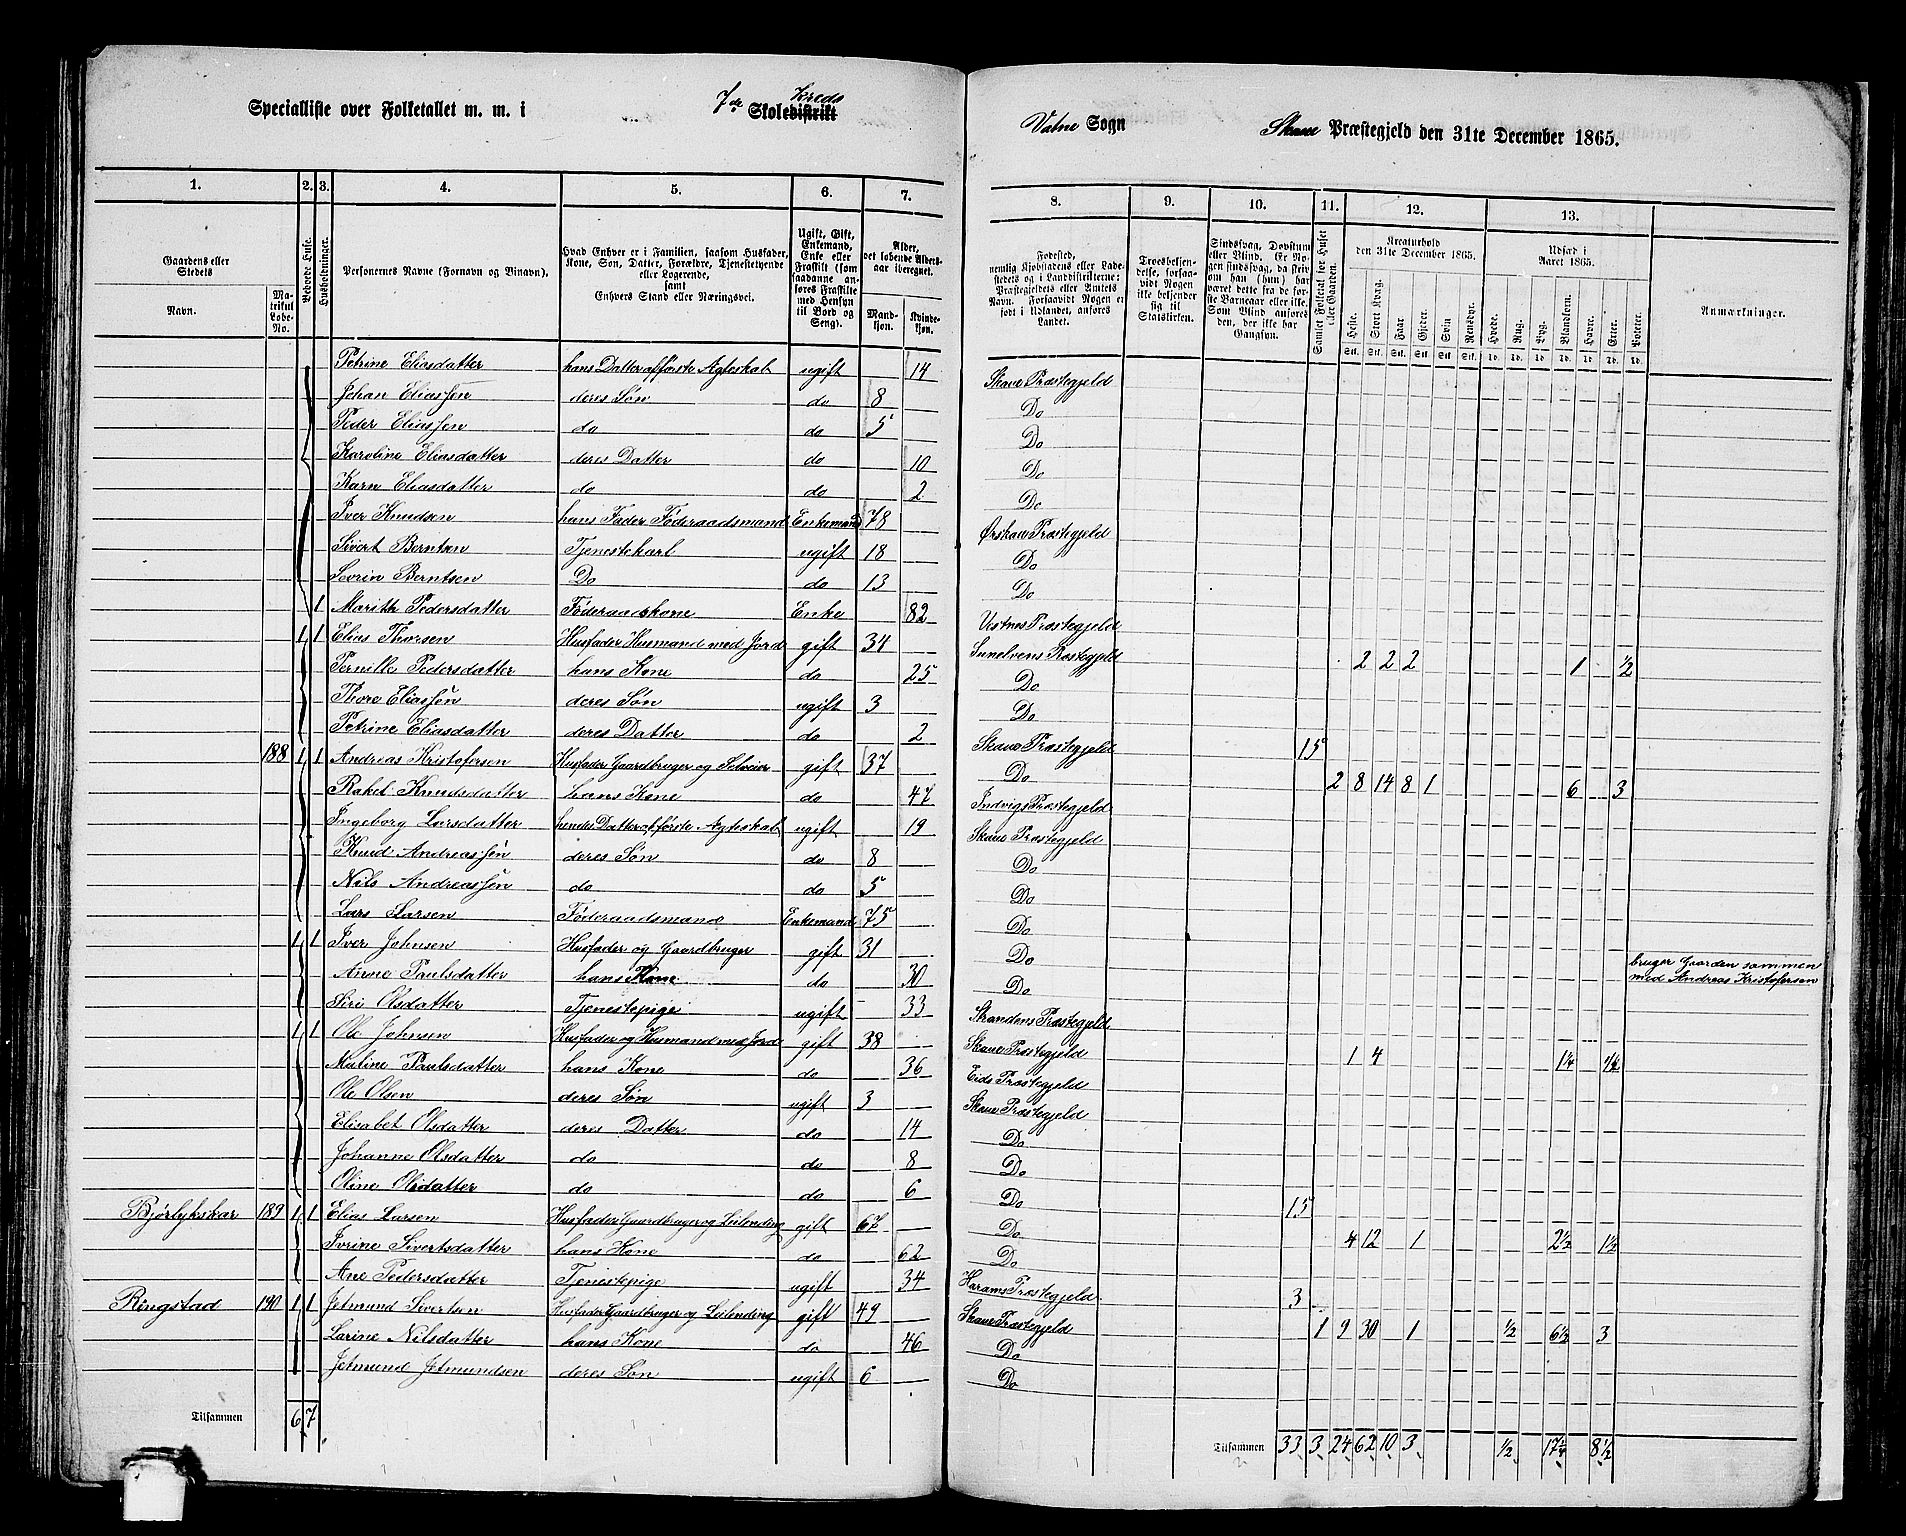 Specialliste over Folketallet m. m. i 7de Kreds Skoledistrikt Vatne Sogn Skaue Præstegjeld den 31te December 1865.
1. 2. 3. 4. 5. 6. 7. 8. 9. 10. 11. 12. 13.
Gaardens eller Stedets
Navn.
Matrikul Løbe-No.
Beboede Huse.
Husholdninger.
Personernes Navne (Fornavn og Binavn).
Hvad Enhver er i Familien, saasom Husfader, Kone, Søn, Datter, Forældre, Tjenestetyende eller Logerende, samt Enhvers Stand eller Næringsvei.
Ugift, Gift, Enkemand, Enke eller Fraskilt (som saadanne anføres Fraskilte med Hensyn til Bord og Seng).
Alder, det løbende Alders-aar iberegnet.
Mandkjøn.
Kvindekjøn.
Fødested, nemlig Kjøbstadens eller Ladestedets og i Landdistrikterne: Præstegjeldets eller Amtets Navn. Forsaavidt Nogen er født i Udlandet, anføres Landet.
Troesbekjendelse, forsaavidt Nogen ikke bekjender sig til Statskirken.
Sindssvag, Døvstum eller Blind. Er Nogen sindssvag, da skriv om han (hun) har været dette fra de første Barneaar eller ikke. Som Blind anføres den, der ikke har Gangsyn.
Samlet Folketal for Huset eller Gaarden.
Kreaturhold den 31te December 1865.
Heste. Stort Kvæg. Faar. Gjeder. Svin. Rensdyr.
Udsæd i Aaret 1865.
Hvede. Rug. Byg. Blandkorn. Havre. Erter. Poteter.
Anmærkninger.
Petrine Eliasdatter hans Datter af første Ægteskab ugift 14 Skaue Præstegjeld
Johan Eliassøn deres Søn do 8 Do
Peder Eliassøn do do 5 Do
Karoline Eliasdatter deres Datter do 10 Do
Karn Eliasdatter do do 2 Do
Iver Knudsen hans Fader Føderaadsmand Enkemand 78 Ørskaue Præstegjeld
Sivert Berntsen Tjenestekarl ugift 18 Do
Sevrin Berntsen Do do 13 Do
1 Marith Pedersdatter Føderaadskone Enke 82 Vestnes Præstegjeld
1 1 Elias Thorsen Husfader Husmand med Jord gift 34 Sunelvens Præstegjeld 2 2 2 1 ½
Pernille Pedersdatter hans Kone do 25 Do
Thore Eliassøn deres Søn ugift 3 Do
Petrine Eliasdatter deres Datter do 2 Skaue Præstegjeld 15
188 1 1 Andreas Kristofersen Husfader Gaardbruger og Selveier gift 37 Do 2 8 14 8 1 6 3
Rakel Knudsdatter hans Kone do 47 Indvigs Præstegjeld
Ingeborg Larsdatter hendes Datter af første Ægteskab ugift 19 Skaue Præstegjeld
Knud Andreassøn deres Søn do 8 Do
Nils Andreassøn do do 5 Do
Lars Larsen Føderaadsmand Enkemand 75 Do
1 1 Iver Johnsen Husfader og Gaardbruger gift 31 Do bruger Gaarden sammen
med Andreas Kristofersen
Anne Paulsdatter hans Kone do 30 Do
Siri Olsdatter Tjenestepige ugift 33 Strandens Præstegjeld
1 1 Ole Johnsen Husfader og Husmand med Jord gift 38 Skaue Præstegjeld 1 4 1¼
Maline Paulsdatter hans Kone do 36 Eids Præstegjeld
Ole Olsen deres Søn ugift 3 Skaue Præstegjeld
Elisabet Olsdatter deres Datter do 14 Do
Johanne Olsdatter do do 8 Do
Oline Olsdatter do do 6 Do 15
Bjørlykskar 189 1 1 Elias Larsen Husfader Gaardbruger og Leilending gift 67 Do 4 12 1 2½ 1½
Ivrine Sivertsdatter hans Kone do 62 Do
Ane Pedersdatter Tjenestepige ugift 34 Harams Præstegjeld 3
Ringstad 190 1 1 Jetmund Sivertsen Husfader Gaardbruger og Leilending gift 49 Skaue Præstegjeld 1 9 30 1 ½ 6½ 3
Larine Nilsdatter hans Kone do 46 Do
Jetmund Jetmundsen deres Søn ugift 6 Do
Tilsammen 6 7 Tilsammen 33 3 24 62 10 3 ½ 17¼ 8½